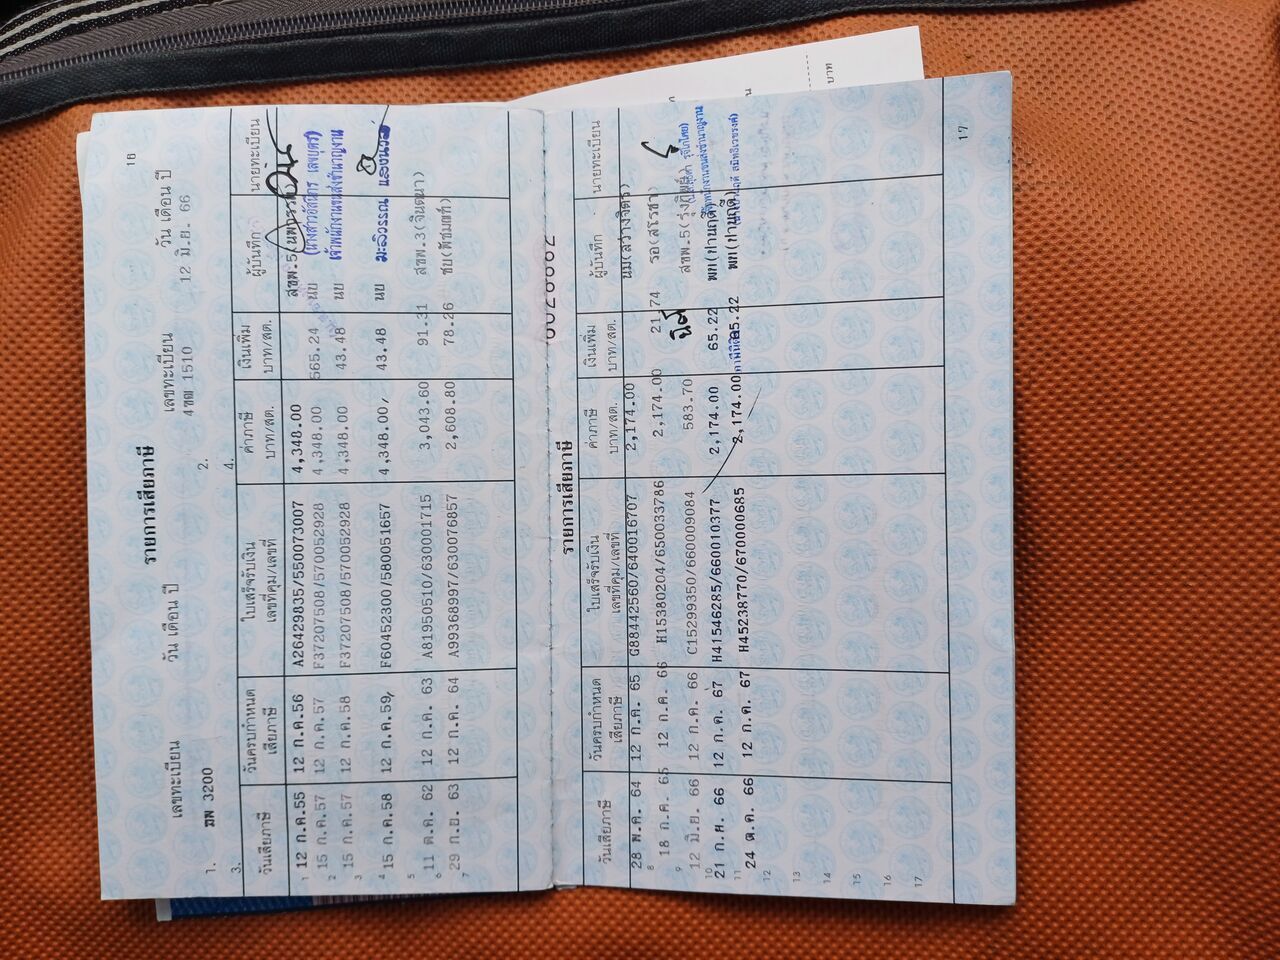 16
รายการเสียภาษี
เลขทะเบียน วัน เดือน ปี เลขทะเบียน วัน เดือน ปี
1. ฌพ 3200 2. 4ขฒ 1510 12 มิ.ย. 66
3. 4.
วันเสียภาษี วันครบกำหนดเสียภาษี ใบเสร็จรับเงิน เลขที่คุม/เลขที่ ค่าภาษี บาท/สต. เงินเพิ่ม บาท/สต. ผู้บันทึก นายทะเบียน
1 12 ก.ค.55 12 ก.ค.56 A26429835/550073007 4,348.00
2 15 ก.ค.57 12 ก.ค.57 F37207508/570052928 4,348.00 565.24 นย
(นางสาวอัสนาร เลขบุตร)
3 15 ก.ค.57 12 ก.ค.58 F37207508/570052928 4,348.00 43.48 นย
เจ้าพนักงานขนส่งชำนาญงาน
4 15 ก.ค.58 12 ก.ค.59 F60452300/580051657 4,348.00 43.48 นย มะลิวรรณ แสงนวล
5
6 11 ต.ค. 62 12 ก.ค. 63 A81950510/630001715 3,043.60 91.31 สขพ.3(จินตนา)
7 29 ก.ย. 63 12 ก.ค. 64 A99368997/630076857 2,608.80 78.26 ชบ(พิชมญชุ์)
รายการเสียภาษี
วันเสียภาษี วันครบกำหนดเสียภาษี ใบเสร็จรับเงิน เลขที่คุม/เลขที่ ค่าภาษี บาท/สต. เงินเพิ่ม บาท/สต. ผู้บันทึก นายทะเบียน
28 พ.ค. 64 12 ก.ค. 65 G88442560/640016707 2,174.00 นม(สว่างจิตร)
8 18 ก.ค. 65 12 ก.ค. 66 H15380204/650033786 2,174.00 21.74 รอ(สโรชา)
9 12 มิ.ย. 66 12 ก.ค. 66 C15299350/660009084 583.70
10 21 ก.ย. 66 12 ก.ค. 67 H41546285/660010377 2,174.00 65.22 พก(ปานฤดี)
11 24 ต.ค. 66 12 ก.ค. 67 H45238770/670000685 2,174.00 65.22 พก(ปานฤดี)
12
13
14
15
16
17
17
บาท